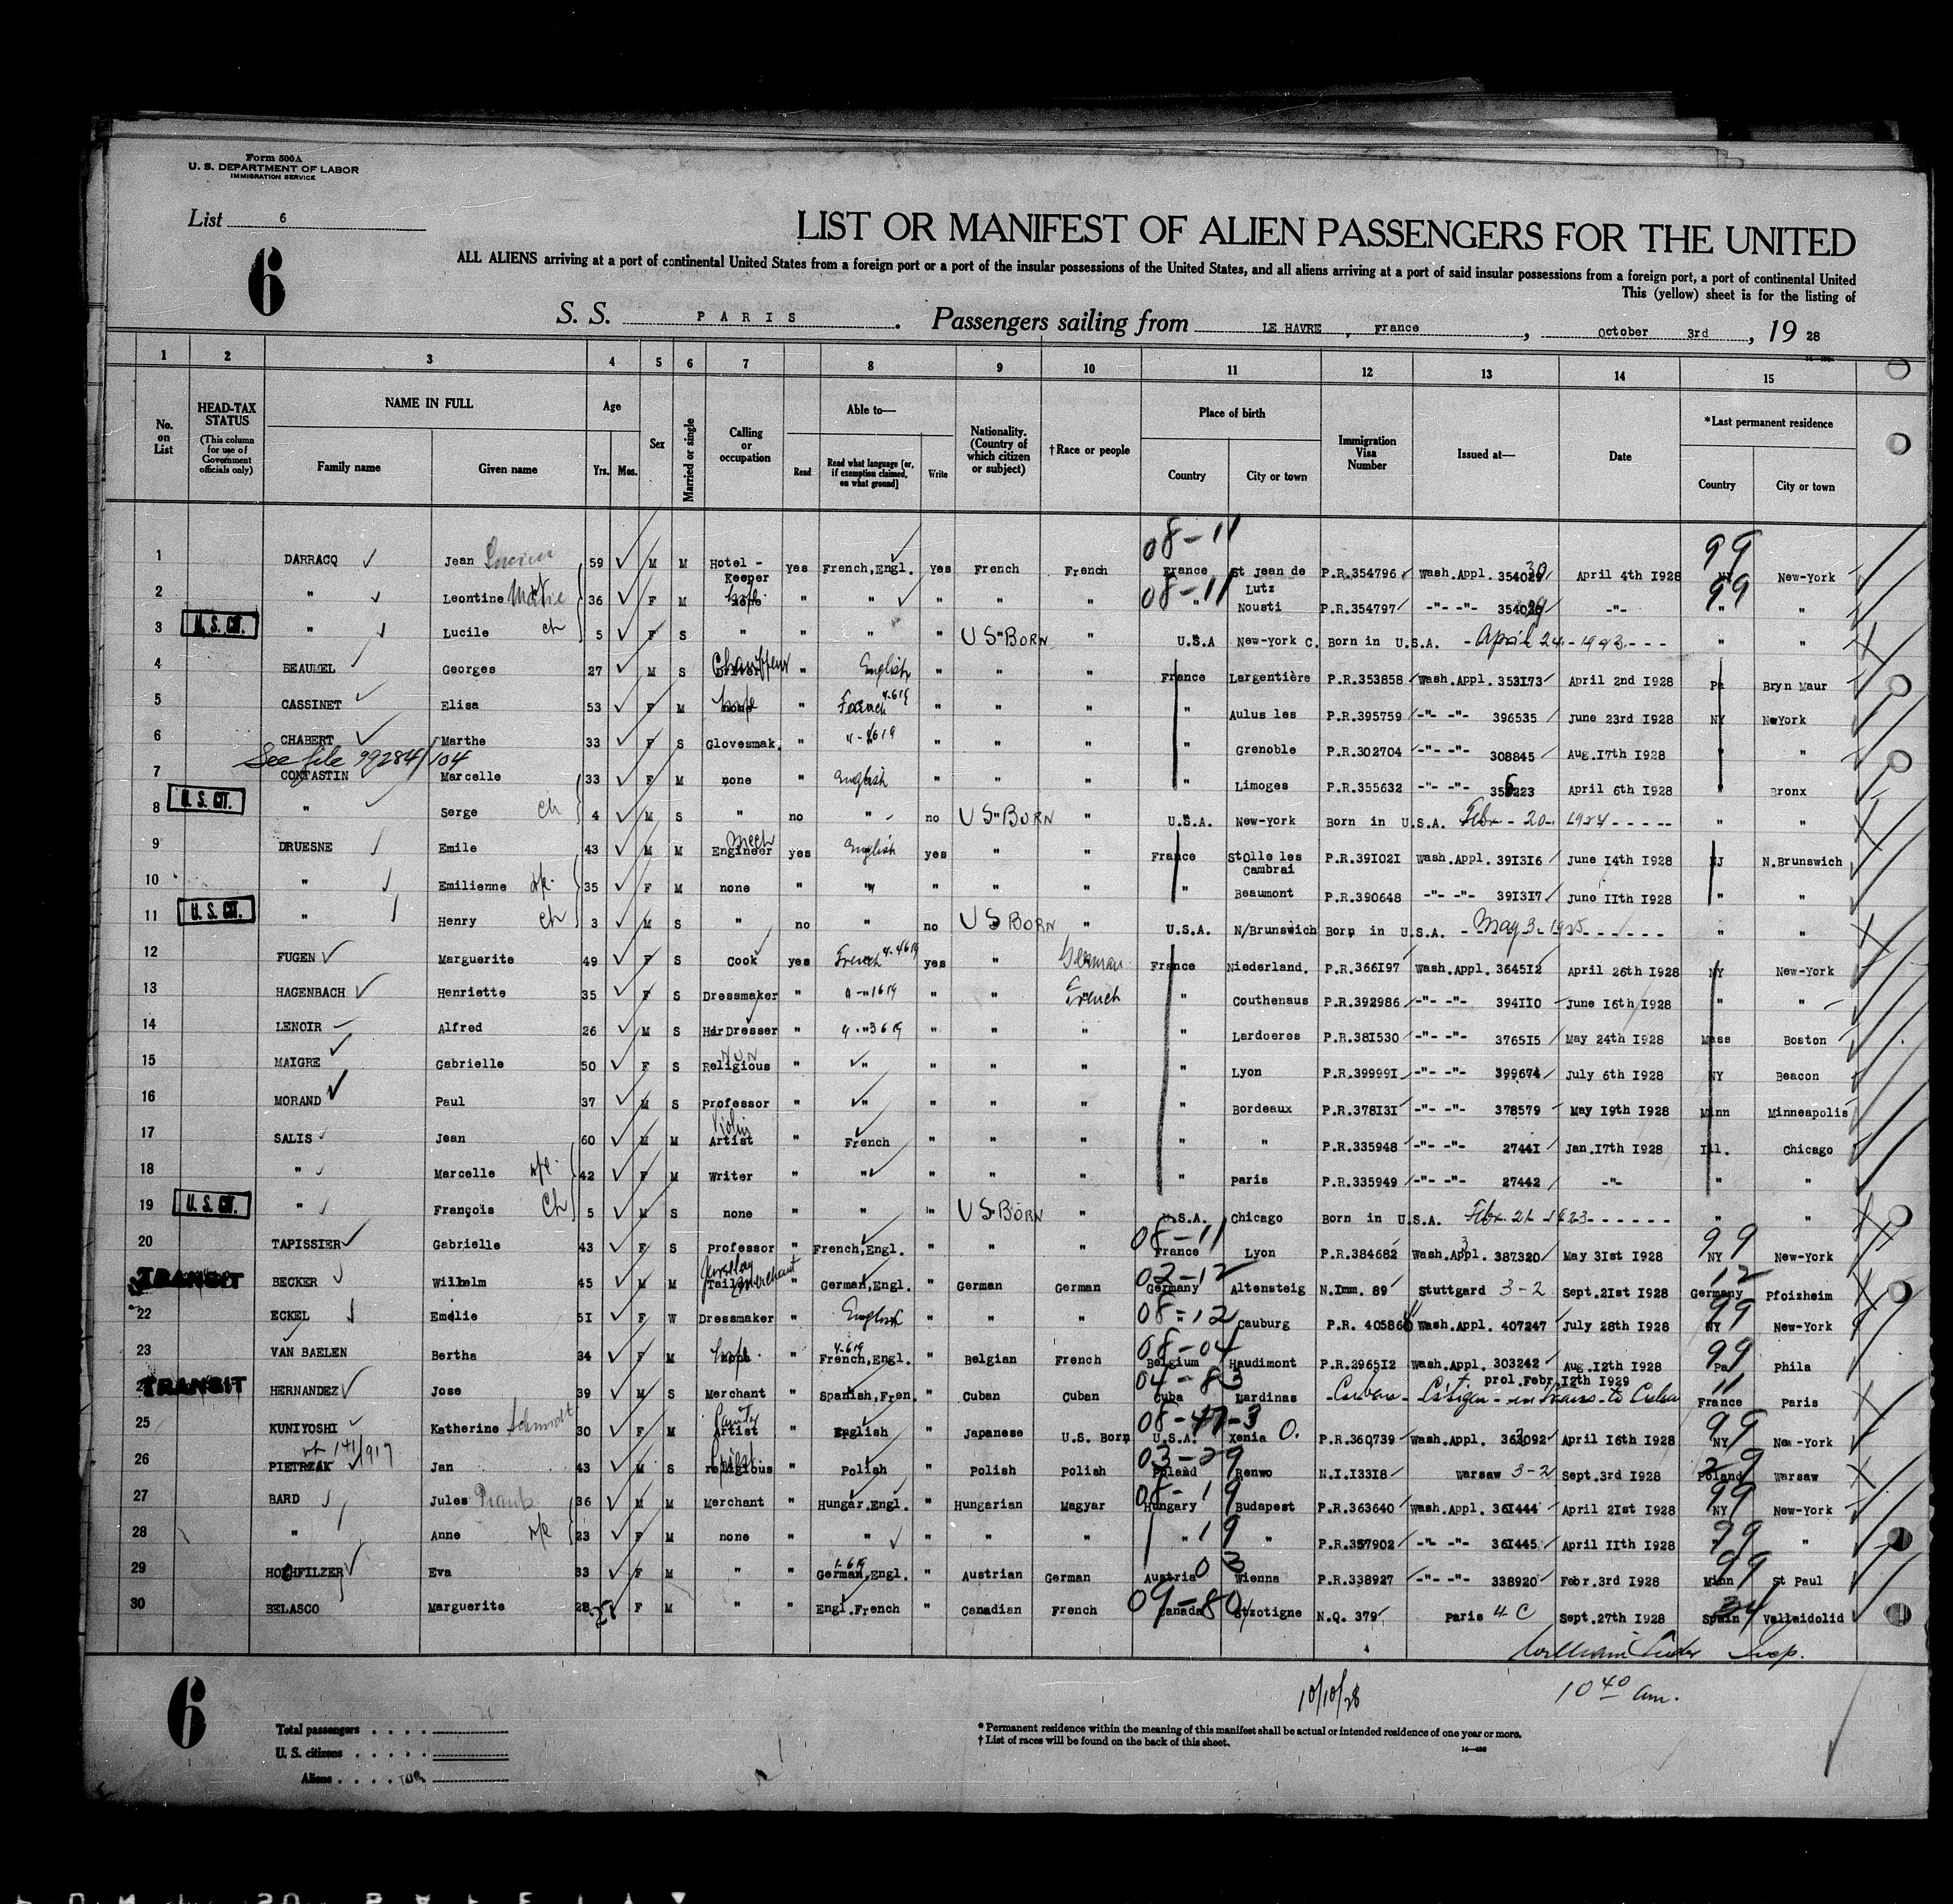 Form 500A
U. S. DEPARTMENT OF LABOR
IMMIGRATION SERVICE
List 6
6
LIST OR MANIFEST OF ALIEN PASSENGERS FOR THE UNITED
ALL ALIENS arriving at a port of continental United States from a foreign port or a port of the insular possessions of the United States, and all aliens arriving at a port of said insular possessions from a foreign port, a port of continental United
This (yellow) sheet is for the listing of
S. S. PARIS. Passengers sailing from LE HAVRE, France, October 3rd, 19 28
1 2 3 4 5 6 7 8 9 10 11 12 13 14 15
No. on List HEAD-TAX STATUS (This column for use of Government officials only) NAME IN FULL Family name Given name Age Yrs. Mos. Sex Married or single Calling or occupation Able to— Read Read what language [or, if exemption claimed, on what ground] Write Nationality. (Country of which citizen or subject) †Race or people Place of birth Country City or town Immigration Visa Number Issued at— Date *Last permanent residence Country City or town
08-11 99
1 DARRACQ Jean 59 M M Hotel-Keeper Yes French,Engl. Yes French French France St Jean de Lutz P.R.354796 Wash.Appl. April 4th 1928 NY New-York
08-11 99
2 " Leontine 36 F M " " " " " " Nousti P.R.354797 -"- -"- -"- " "
3 U.S. CIT. " Lucile ch 5 F S " " " " US BORN " U.S.A New-York C. Born in U.S.A. - April 24 - 1923 - - - " "
4 BEAUMEL Georges 27 M S Chauffeur " English " " " France Largentière P.R.353858 Wash.Appl. 353173 April 2nd 1928 Pa Bryn Maur
5 CASSINET Elisa 53 F M " French " " " " Aulus les P.R.395759 -"- -"- 396535 June 23rd 1928 NY NewYork
6 CHABERT Marthe 33 F S Glovesmak. " " " " " " Grenoble P.R.302704 -"- -"- 308845 Aug.17th 1928 " "
See file 99284/104
7 CONTASTIN Marcelle 33 F M none " English " " " " Limoges P.R.355632 -"- -"- April 6th 1928 " Bronx
8 U.S. CIT. " Serge ch 4 M S " no " no US BORN " U.S.A. New-York Born in U.S.A. Febr - 20 - 1924 - - - - - " "
9 DRUESNE Emile 43 M M Mech Engineer yes English yes " " France Stolle les Cambrai P.R.391021 Wash.Appl. 391316 June 14th 1928 NJ N.Brunswich
10 " Emilienne 35 F M none " " " " " " Beaumont P.R.390648 -"- -"- 391317 June 11th 1928 " "
11 U.S. CIT. " Henry ch 3 M S " no " no US BORN " U.S.A. N/Brunswich Born in U.S.A. - May 3 - 1925 - - - - - " "
12 FUGEN Marguerite 49 F S Cook yes French yes " German France Niederland. P.R.366197 Wash.Appl. 364512 April 26th 1928 NY New-York
13 HAGENBACH Henriette 35 F S Dressmaker " " " " French " Couthenaus P.R.392986 -"- -"- 394110 June 16th 1928 " "
14 LENOIR Alfred 26 M S HairDresser " " " " " " Lardoeres P.R.381530 -"- -"- 376515 May 24th 1928 Mass Boston
15 MAIGRE Gabrielle 50 F S NUN Religious " " " " " " Lyon P.R.399991 -"- -"- 399674 July 6th 1928 NY Beacon
16 MORAND Paul 37 M S Professor " " " " " " Bordeaux P.R.378131 -"- -"- 378579 May 19th 1928 Minn Minneapolis
17 SALIS Jean 60 M M Violin Artist " French " " " " " P.R.335948 -"- -"- 27441 Jan.17th 1928 Ill. Chicago
18 " Marcelle 42 F M Writer " " " " " " Paris P.R.335949 -"- -"- 27442 -"- " "
19 U.S. CIT. " François Ch 5 M S none " " " US BORN " U.S.A. Chicago Born in U.S.A. Febr. 21 - 1923 - - - - - - " "
08-11 99
20 TAPISSIER Gabrielle 43 F S Professor " French,Engl. " " " France Lyon P.R.384682 Wash.Appl. 387320 May 31st 1928 NY New-York
02-12 12
TRANSIT BECKER Wilhelm 45 M M " German,Engl. " German German Germany Altensteig N.Imm. 89 Stuttgard 3-2 Sept.21st 1928 Germany Pfoizheim
08-12 99
22 ECKEL Emelie 51 F W Dressmaker " English " " " " Cauburg P.R. 40586 Wash.Appl. 407247 July 28th 1928 NY New-York
08-04 99
23 VAN BAELEN Bertha 34 F M " French,Engl. " Belgian French Belgium Haudimont P.R.296512 Wash.Appl. 303242 Aug.12th 1928 Pa Phila
prol.Febr.12th 1929
04-83 11
TRANSIT HERNANDEZ Jose 39 M S Merchant " Spanish,Fren. " Cuban Cuban Cuba Lardinas - Cuban - Citizen - in Trans - to Cuba France Paris
99
25 KUNIYOSHI Katherine Schmidt 30 F M Artist " English " Japanese U.S. Born U.S.A. Xenia O. P.R.360739 Wash.Appl. April 16th 1928 NY New-York
141/917 03-29 29
26 PIETRZAK Jan 43 M S Priest religious " Polish " Polish Polish Poland Renwo N.I.13318 Warsaw 3-2 Sept.3rd 1928 Poland Warsaw
08-19 99
27 BARD Jules 36 M M Merchant " Hungar.Engl. " Hungarian Magyar Hungary Budapest P.R.363640 Wash.Appl. 361444 April 21st 1928 NY New-York
19 99
28 " Anne 23 F M none " " " " " " " P.R.357902 -"- -"- 361445 April 11th 1928 "
03 99
29 HOCHFILZER Eva 33 F M " " German,Engl. " Austrian German Austria Wienna P.R.338927 -"- -"- 338920 Febr.3rd 1928 Minn St Paul
09-80 24
30 BELASCO Marguerite 28 F M " " Engl.French " Canadian French Canada Stzotigne N.Q. 379 Paris 4 C Sept.27th 1928 Spain Valladolid
William Insp.
10/10/28 10 40 am.
6
Total passengers
U. S. citizens
Aliens
* Permanent residence within the meaning of this manifest shall be actual or intended residence of one year or more.
† List of races will be found on the back of this sheet.